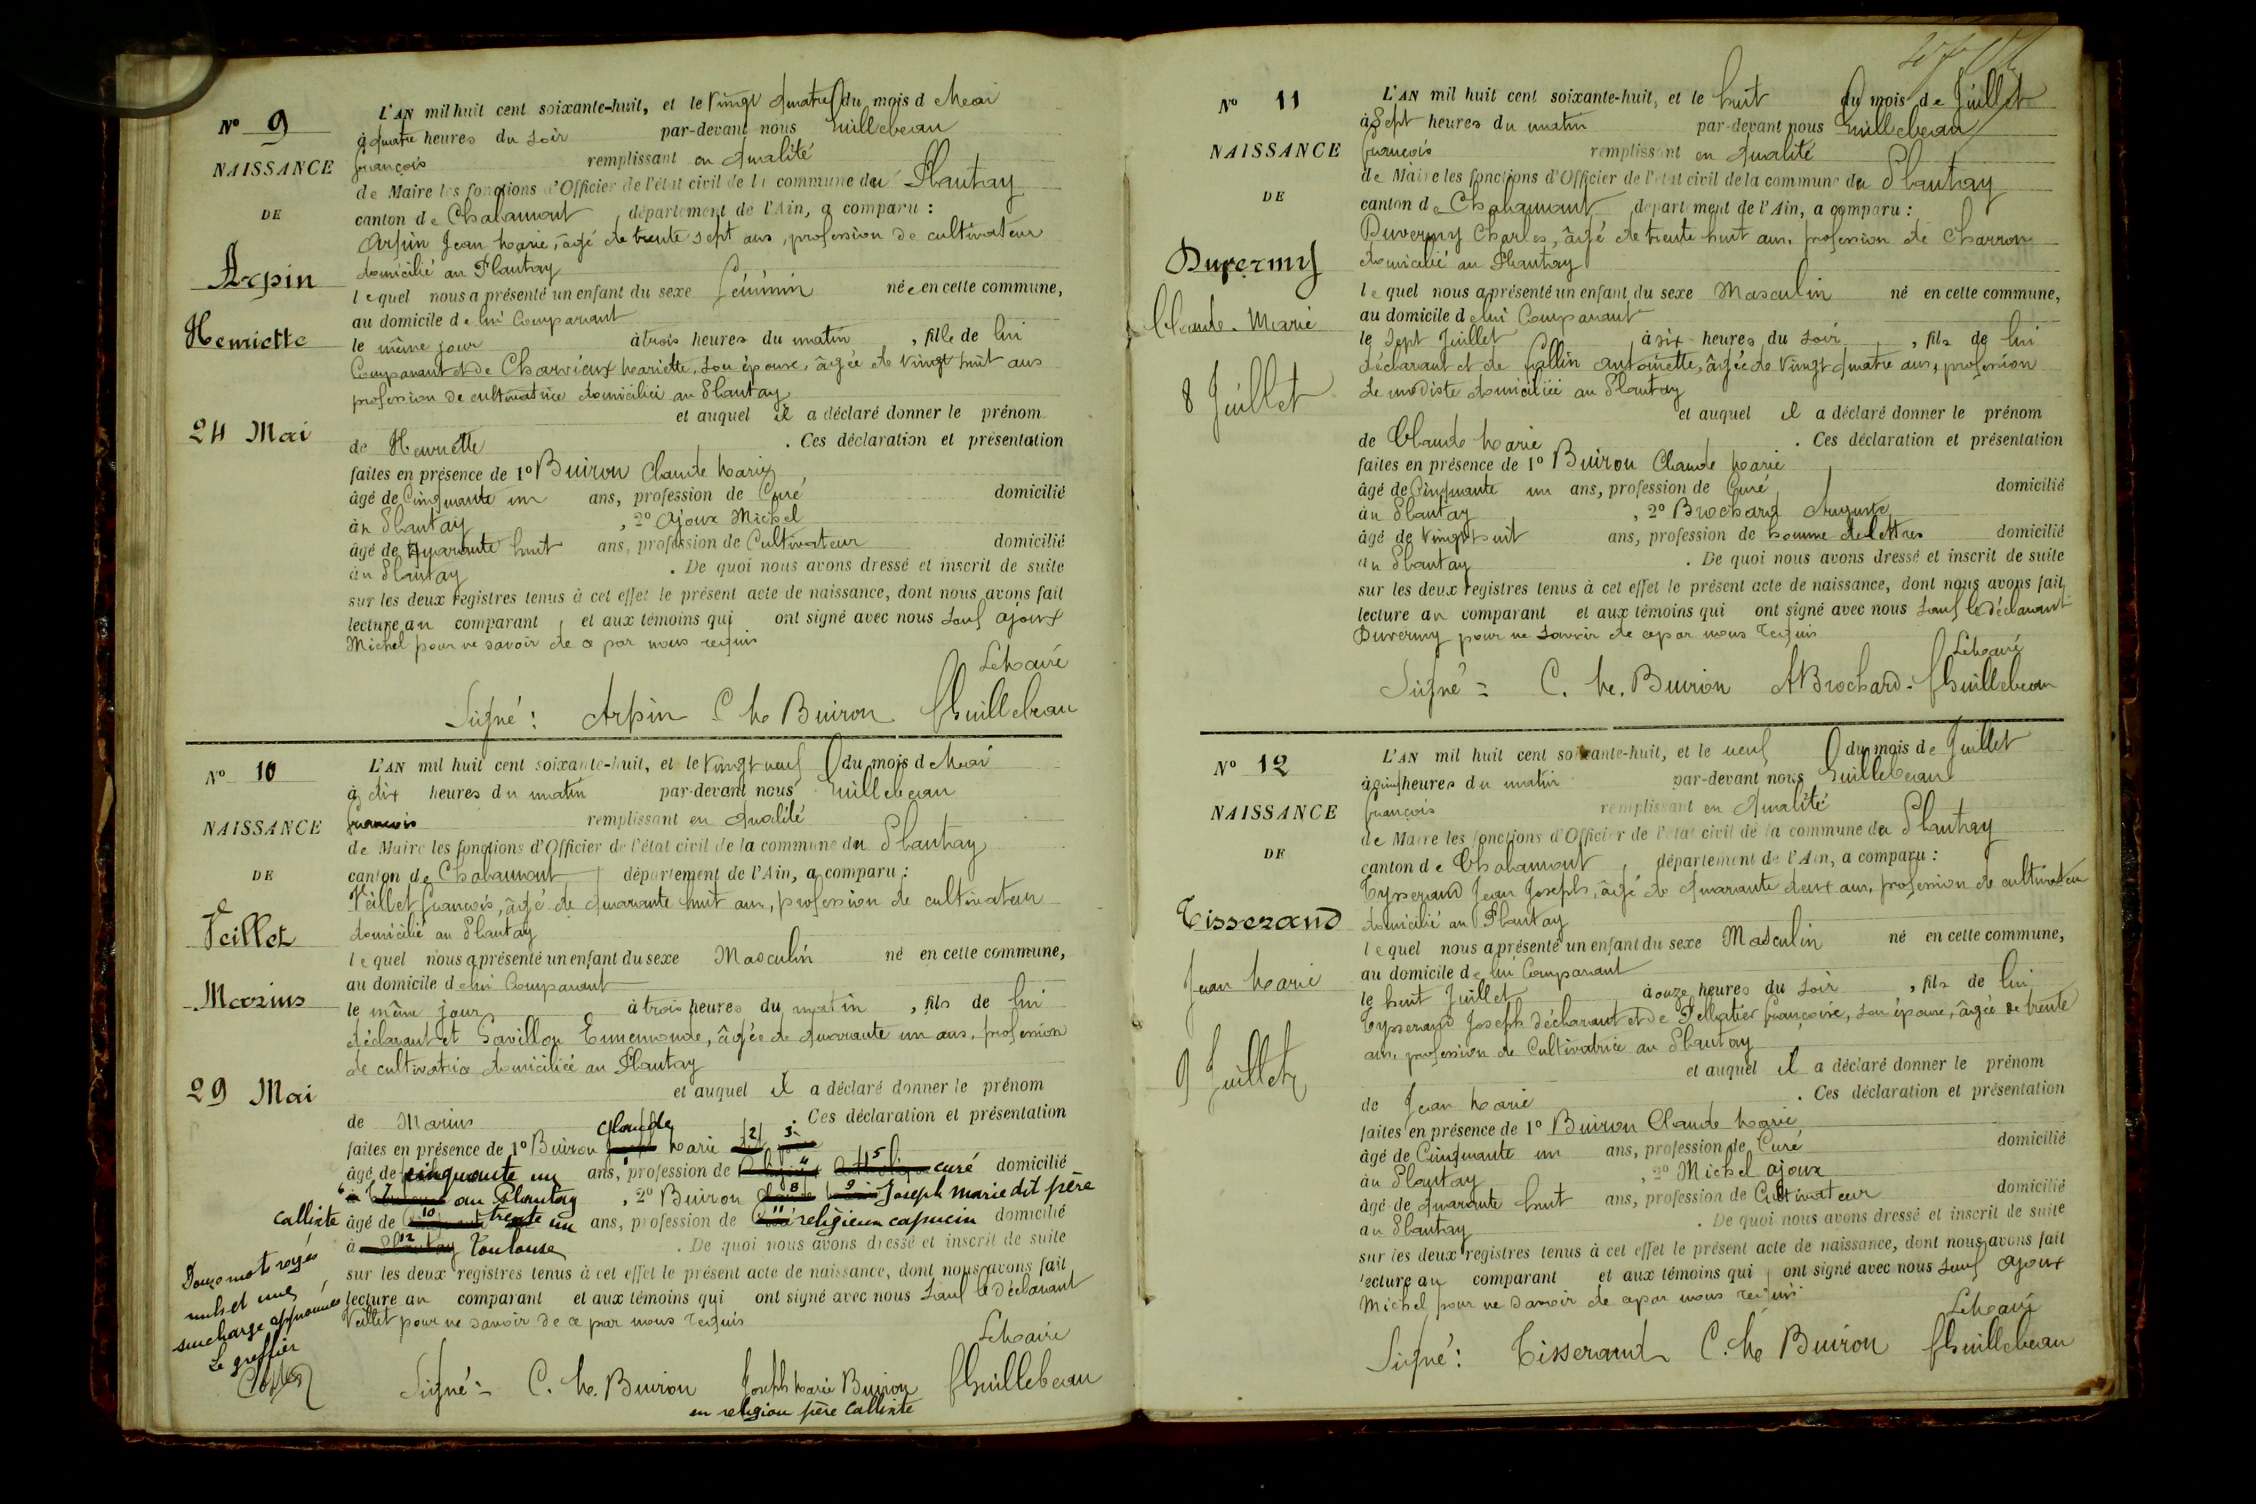 N° 9
NAISSANCE
DE
Arpin
Henriette
24 Mai
L'AN mil huit cent soixante-huit, et le vingt quatre du mois d Mai
à quatre heures du soir par-devant nous Guillebeau
françois remplissant en qualité
de Maire les fonctions d'Officier de l'état civil de la commune du Plantay
canton de Chalamont département de l'Ain, a comparu :
Arpin Jean Marie, âgé de trente sept ans, profession de cultivateur
domicilié au Plantay
lequel nous a présenté un enfant du sexe féminin née en cette commune,
au domicile de lui Comparant
le même jour à trois heures du matin, fille de lui
Comparant et de Charvieux Mariette, son épouse, âgée de vingt huit ans
profession de cultivatrice domiciliée au Plantay
et auquel il a déclaré donner le prénom
de Henriette . Ces déclaration et présentation
faites en présence de 1° Buiron Claude Marie
âgé de Cinquante un ans, profession de Curé domicilié
au Plantay , 2° ajoux Michel
âgé de quarante huit ans, profession de Cultivateur domicilié
au Plantay . De quoi nous avons dressé et inscrit de suite
sur les deux registres tenus à cet effet le présent acte de naissance, dont nous avons fait
lecture au comparant et aux témoins qui ont signé avec nous sauf ajoux
Michel pour ne savoir de ce par nous requis
Le Maire
Signé : Arpin C M Buiron f Guillebeau
N° 10
NAISSANCE
DE
Veillet
Marius
29 Mai
L'AN mil huit cent soixante-huit, et le vingt neuf du mois d Mai
à dix heures du matin par-devant nous Guillebeau
françois remplissant en qualité
de Maire les fonctions d'Officier de l'état civil de la commune du Plantay
canton de Chalamont département de l'Ain, a comparu :
Veillet françois, âgé de quarante huit ans, profession de cultivateur
domicilié au Plantay
lequel nous a présenté un enfant du sexe Masculin né en cette commune,
au domicile de lui Comparant
le même jour à trois heures du matin , fils de lui
déclarant et Savillon Ennemonde, âgée de quarante un ans, profession
de cultivatrice domiciliée au Plantay
et auquel il a déclaré donner le prénom
de Marius . Ces déclaration et présentation
faites en présence de 1° Buiron Claude Marie 2 3
âgé de cinquante un ans, profession de 4 5 curé domicilié
6 7 au Plantay , 2° Buiron 8 9 Joseph Marie dit père
Callixte âgé de 10 trente un ans, profession de 11 religieux capucin domicilié
à 12 Toulouse . De quoi nous avons dressé et inscrit de suite
sur les deux registres tenus à cet effet le présent acte de naissance, dont nous avons fait
lecture au comparant et aux témoins qui ont signé avec nous sauf le déclarant
Veillet pour ne savoir de ce par nous requis
Douze mots rayés
nuls et une
surcharge approuvés
Le greffier
Le Maire
Signé = C. M. Buiron Joseph Marie Buiron f Guillebeau
en religion père Callixte
N° 11
NAISSANCE
DE
Duvermy
Claude-Marie
8 Juillet
L'AN mil huit cent soixante-huit, et le huit du mois de Juillet
à Sept heures du matin par-devant nous Guillebeau
françois remplissant en qualité
de Maire les fonctions d'Officier de l'état civil de la commune du Plantay
canton de Chalamont département de l'Ain, a comparu :
Duvermy Charles, âgé de trente huit ans, profession de Charron
domicilié au Plantay
lequel nous a présenté un enfant du sexe Masculin né en cette commune,
au domicile de lui Comparant
le Sept Juillet à six heures du soir , fils de lui
déclarant et de Collin Antoinette, âgée de vingt quatre ans, profession
de modiste domiciliée au Plantay
et auquel il a déclaré donner le prénom
de Claude Marie . Ces déclaration et présentation
faites en présence de 1° Buiron Claude Marie
âgé de Cinquante un ans, profession de Curé domicilié
au Plantay , 2° Brochard Auguste
âgé de vingt huit ans, profession de homme de lettres domicilié
au Plantay . De quoi nous avons dressé et inscrit de suite
sur les deux registres tenus à cet effet le présent acte de naissance, dont nous avons fait
lecture au comparant et aux témoins qui ont signé avec nous sauf le déclarant
Duvermy pour ne savoir de ce par nous requis
Le Maire
Signé = C. M. Buiron A Brochard f Guillebeau
N° 12
NAISSANCE
DE
Tisserand
Jean Marie
9 Juillet
L'AN mil huit cent soixante-huit, et le neuf du mois de Juillet
à cinq heures du matin par-devant nous Guillebeau
françois remplissant en qualité
de Maire les fonctions d'Officier de l'état civil de la commune du Plantay
canton de Chalamont , département de l'Ain, a comparu :
Tysserand Jean Joseph, âgé de quarante deux ans, profession de cultivateur
domicilié au Plantay
lequel nous a présenté un enfant du sexe Masculin né en cette commune,
au domicile de lui Comparant
le huit Juillet à onze heures du soir , fils de lui
Tysserand Joseph déclarant et de Pellatier françoise, son épouse, âgée de trente
ans, profession de Cultivatrice au Plantay
et auquel il a déclaré donner le prénom
de Jean Marie . Ces déclaration et présentation
faites en présence de 1° Buiron Claude Marie
âgé de Cinquante un ans, profession de Curé domicilié
au Plantay , 2° Michel ajoux
âgé de quarante huit ans, profession de Cultivateur domicilié
au Plantay . De quoi nous avons dressé et inscrit de suite
sur les deux registres tenus à cet effet le présent acte de naissance, dont nous avons fait
lecture au comparant et aux témoins qui ont signé avec nous sauf ajoux
Michel pour ne savoir de ce par nous requis
Le Maire
Signé : Tisserand C. M Buiron f Guillebeau